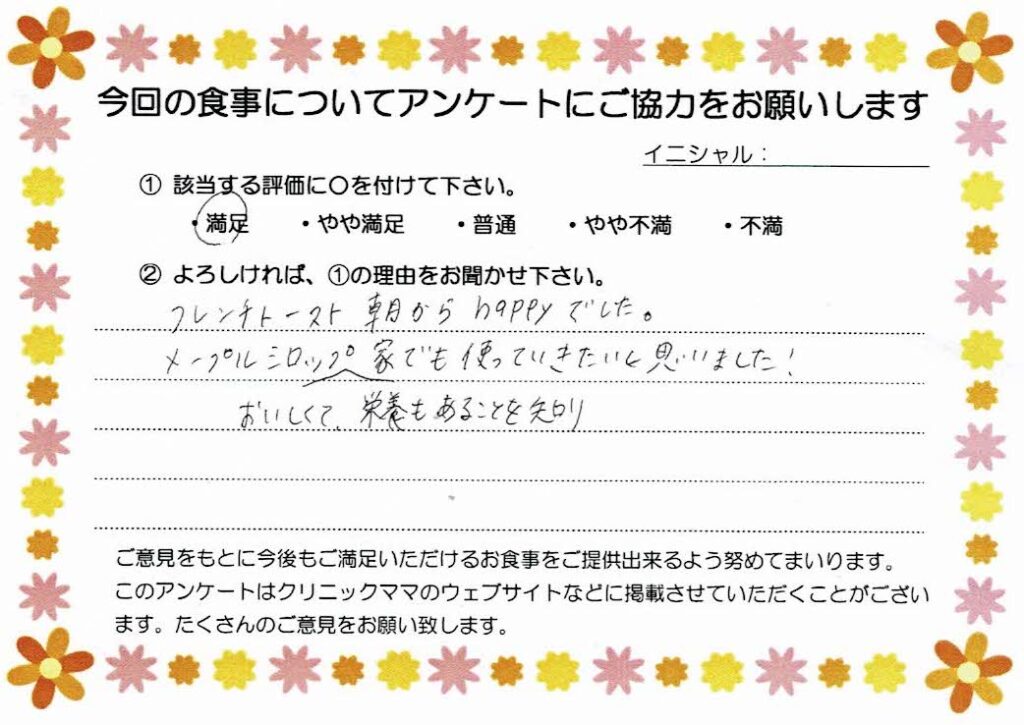 今回の食事についてアンケートにご協力をお願いします
イニシャル：
① 該当する評価に〇を付けて下さい。
・満足 ・やや満足 ・普通 ・やや不満 ・不満
② よろしければ、①の理由をお聞かせ下さい。
フレンチトースト 朝から happyでした。
メープルシロップ 家でも使っていきたいと思いました！
おいしくて、栄養もあることを知り
ご意見をもとに今後もご満足いただけるお食事をご提供出来るよう努めてまいります。
このアンケートはクリニックママのウェブサイトなどに掲載させていただくことがござい
ます。たくさんのご意見をお願い致します。